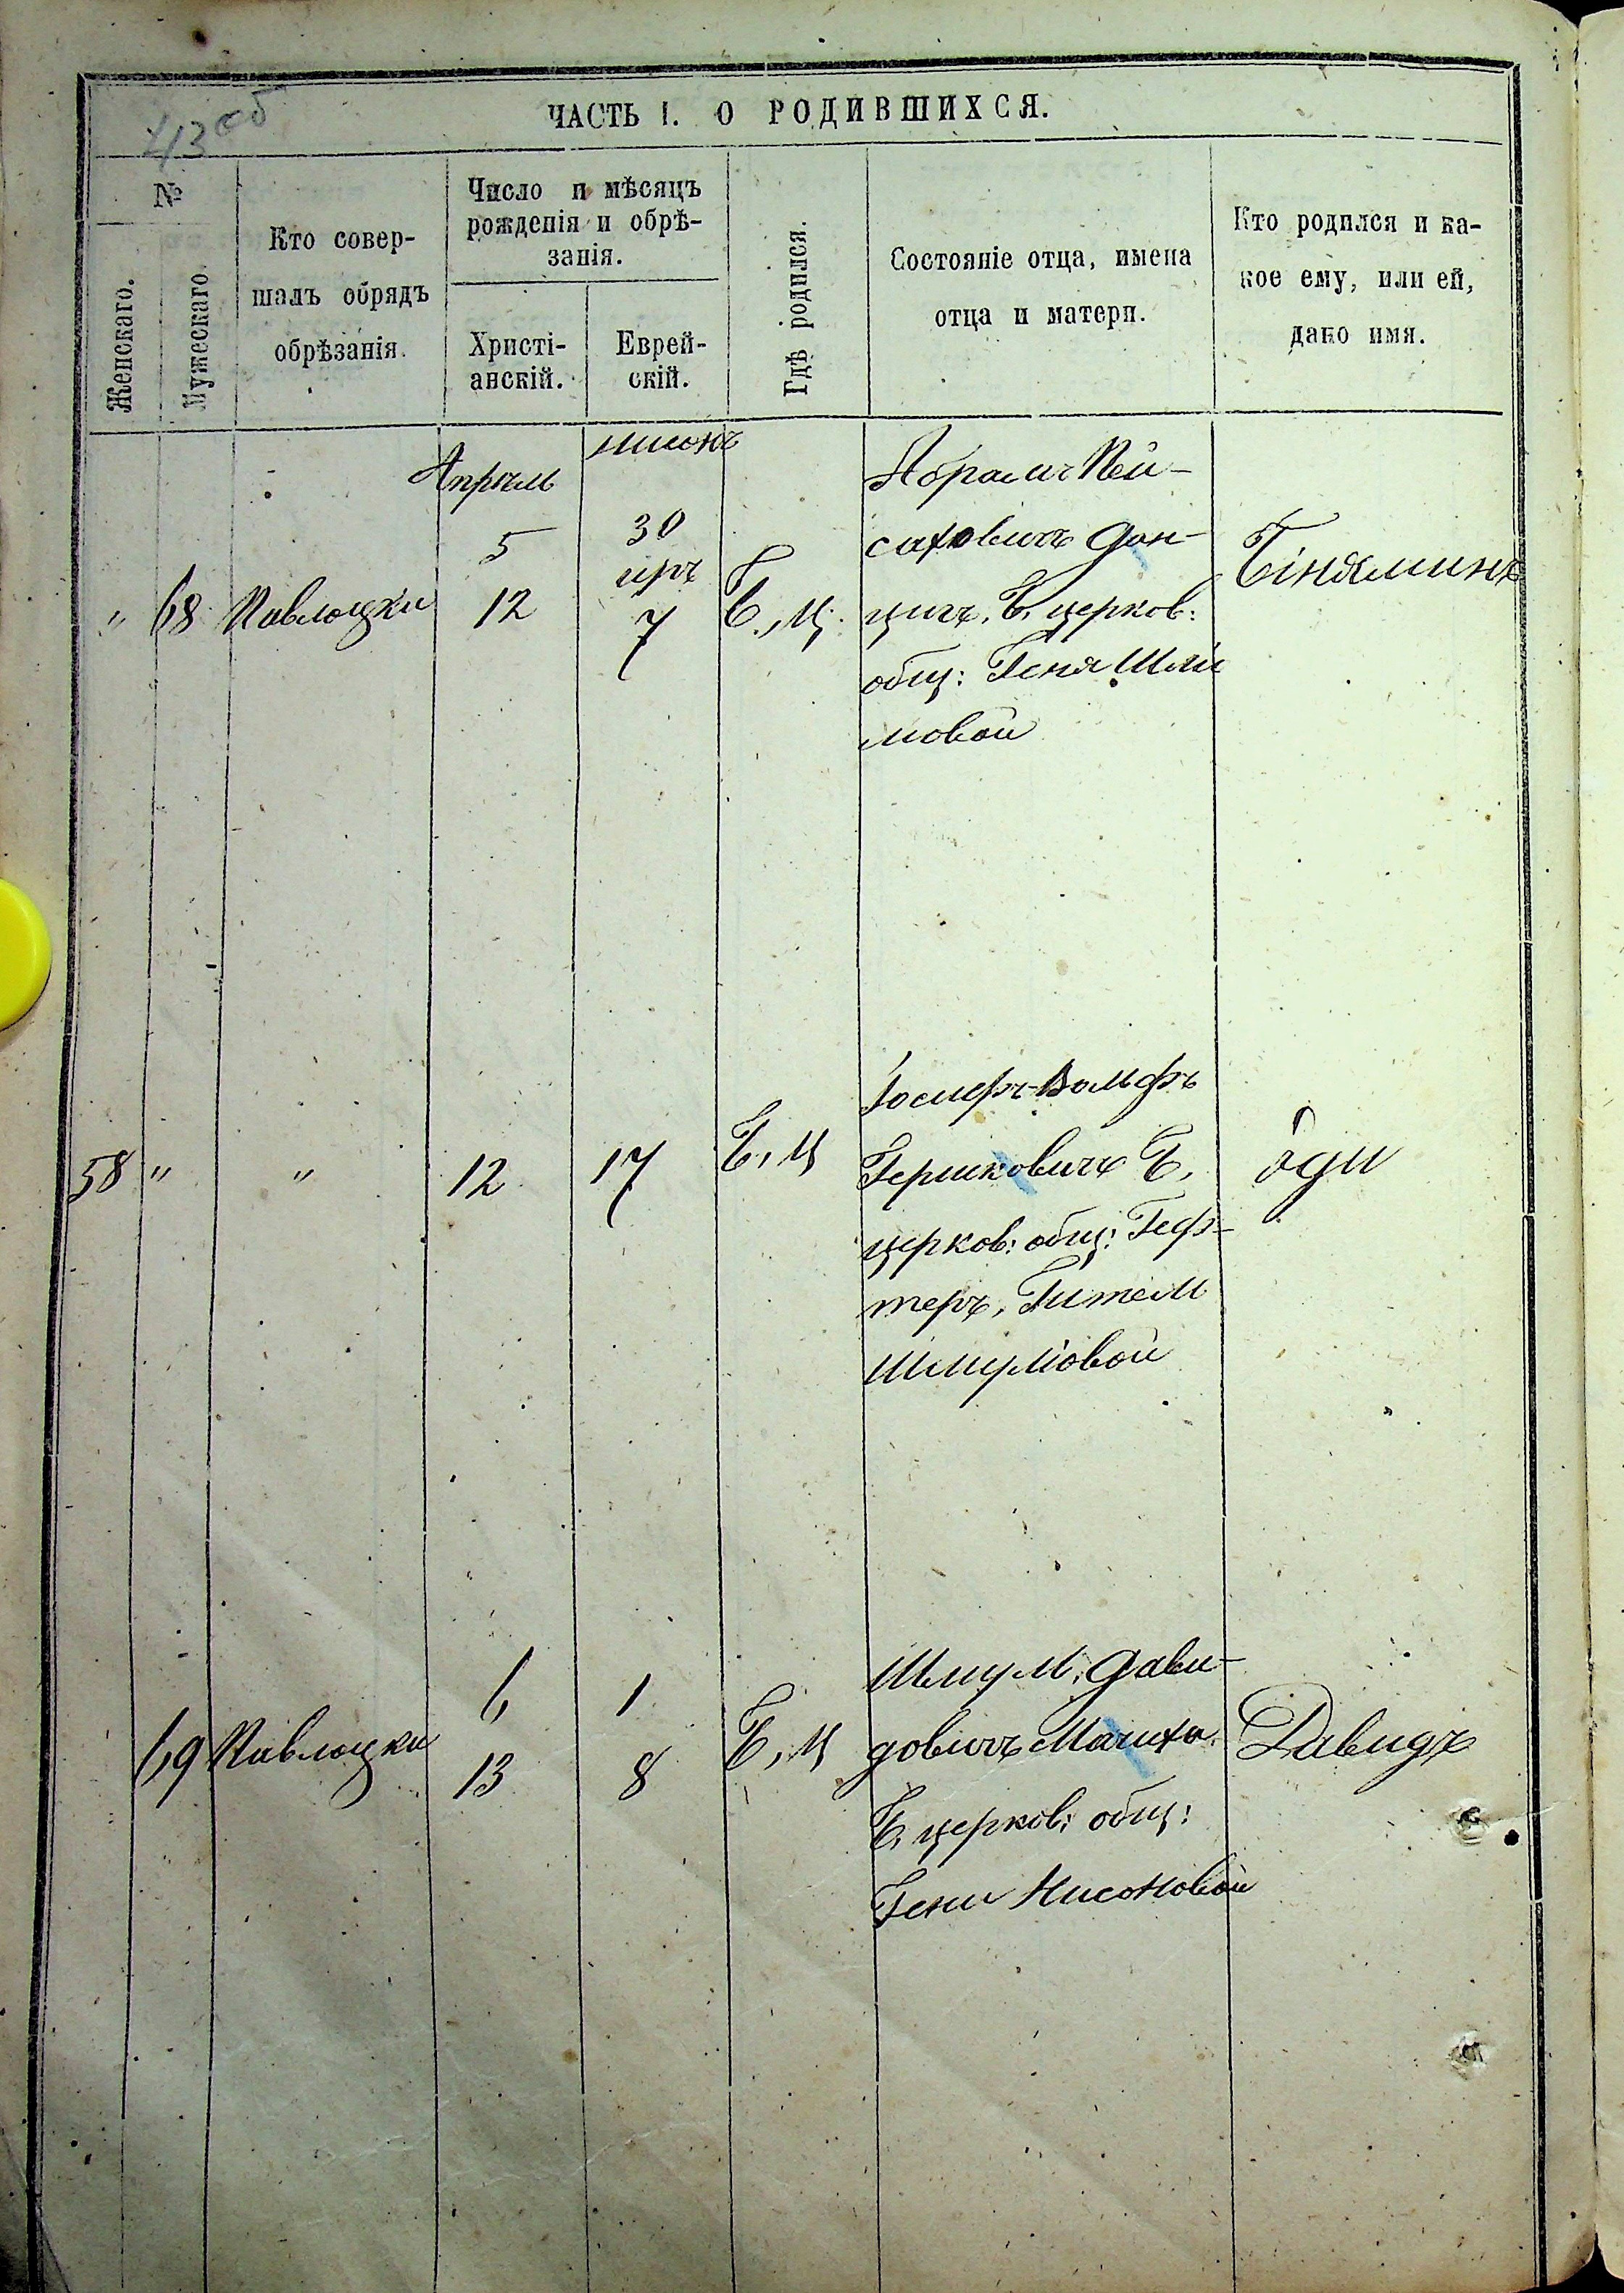 43 об
ЧАСТЬ I. О РОДИВШИХСЯ.
№
Женскаго.
Мужескаго.
Кто совер-
шалъ обрядъ
обрѣзанія.
Число и мѣсяцъ
рожденія и обрѣ-
занія.
Христі-
анскій.
Еврей-
скій.
Гдѣ родился.
Состояніе отца, имена
отца и матери.
Кто родился и ка-
кое ему, или ей,
дано имя.
"
68
Павлоцки
Апрѣль
5
12
нисонъ
30
иръ
7
Б., Ц.
Абрамъ Пей-
саховичъ Дан-
цигъ, Б, церков:
общ: Геня Шлі
мовой
Біняминъ
58
"
"
12
17
Б, Ц
Іосифъ-Вольфъ
Гершковичъ Б,
церков: общ: Геф-
теръ, Гитель
Шмуліовой
Оди
69
Павлоцки
6
13
1
8
Б, Ц
Шмуль, Дави-
довичъ Мачиха
Б, церков: общ:
Гени Нисоновой
Давидъ